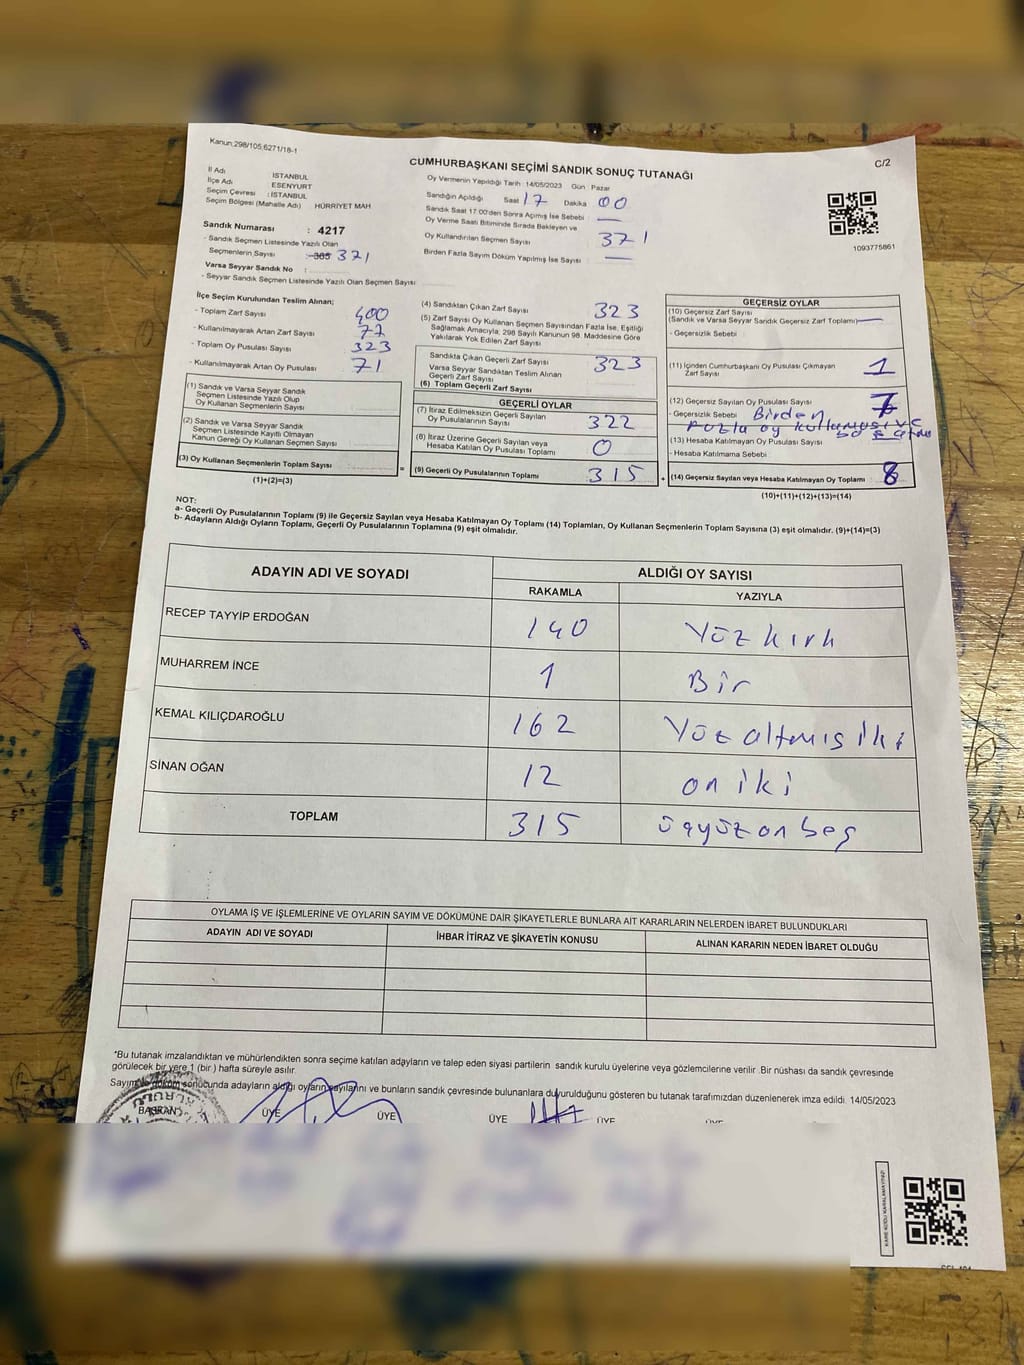 Kanun:298/105,6271/18-1
C/2
CUMHURBAŞKANI SEÇİMİ SANDIK SONUÇ TUTANAĞI
İl Adı İSTANBUL
İlçe Adı ESENYURT
Seçim Çevresi : İSTANBUL
Seçim Bölgesi (Mahalle Adı) HÜRRİYET MAH.
Oy Vermenin Yapıldığı Tarih : 14/05/2023 Gün : Pazar
Sandığın Açıldığı Saat 17 Dakika 00
Sandık Saat 17.00'den Sonra Açılmış İse Sebebi
Oy Verme Saati Bitiminde Sırada Bekleyen ve
Oy Kullandırılan Seçmen Sayısı 371
Birden Fazla Sayım Döküm Yapılmış İse Sayısı :
1093775861
Sandık Numarası : 4217
- Sandık Seçmen Listesinde Yazılı Olan
Seçmenlerin Sayısı : 365 371
Varsa Seyyar Sandık No :
- Seyyar Sandık Seçmen Listesinde Yazılı Olan Seçmen Sayısı
İlçe Seçim Kurulundan Teslim Alınan;
- Toplam Zarf Sayısı 400
- Kullanılmayarak Artan Zarf Sayısı 77
- Toplam Oy Pusulası Sayısı 323
- Kullanılmayarak Artan Oy Pusulası 71
(1) Sandık ve Varsa Seyyar Sandık
Seçmen Listesinde Yazılı Olup
Oy Kullanan Seçmenlerin Sayısı
(2) Sandık ve Varsa Seyyar Sandık
Seçmen Listesinde Kayıtlı Olmayan
Kanun Gereği Oy Kullanan Seçmen Sayısı
(3) Oy Kullanan Seçmenlerin Toplam Sayısı =
(1)+(2)=(3)
(4) Sandıktan Çıkan Zarf Sayısı 323
(5) Zarf Sayısı Oy Kullanan Seçmen Sayısından Fazla İse, Eşitliği
Sağlamak Amacıyla; 298 Sayılı Kanunun 98. Maddesine Göre
Yakılarak Yok Edilen Zarf Sayısı
Sandıkta Çıkan Geçerli Zarf Sayısı 323
Varsa Seyyar Sandıktan Teslim Alınan
Geçerli Zarf Sayısı
(6) Toplam Geçerli Zarf Sayısı
GEÇERLİ OYLAR
(7) İtiraz Edilmeksizin Geçerli Sayılan
Oy Pusulalarının Sayısı 322
(8) İtiraz Üzerine Geçerli Sayılan veya
Hesaba Katılan Oy Pusulası Toplamı 0
(9) Geçerli Oy Pusulalarının Toplamı 315 +
GEÇERSİZ OYLAR
(10) Geçersiz Zarf Sayısı
(Sandık ve Varsa Seyyar Sandık Geçersiz Zarf Toplamı)
- Geçersizlik Sebebi
(11) İçinden Cumhurbaşkanı Oy Pusulası Çıkmayan
Zarf Sayısı 1
(12) Geçersiz Sayılan Oy Pusulası Sayısı : 7
- Geçersizlik Sebebi Birden
fazla oy kullanması ve
(13) Hesaba Katılmayan Oy Pusulası Sayısı
- Hesaba Katılmama Sebebi
(14) Geçersiz Sayılan veya Hesaba Katılmayan Oy Toplamı : 8
(10)+(11)+(12)+(13)=(14)
NOT:
a- Geçerli Oy Pusulalarının Toplamı (9) ile Geçersiz Sayılan veya Hesaba Katılmayan Oy Toplamı (14) Toplamları, Oy Kullanan Seçmenlerin Toplam Sayısına (3) eşit olmalıdır. (9)+(14)=(3)
b- Adayların Aldığı Oyların Toplamı, Geçerli Oy Pusulalarının Toplamına (9) eşit olmalıdır.
ADAYIN ADI VE SOYADI ALDIĞI OY SAYISI
RAKAMLA YAZIYLA
RECEP TAYYİP ERDOĞAN 140 Yüz kırk
MUHARREM İNCE 1 Bir
KEMAL KILIÇDAROĞLU 162 Yüz altmış iki
SİNAN OĞAN 12 on iki
TOPLAM 315 üçyüz on beş
OYLAMA İŞ VE İŞLEMLERİNE VE OYLARIN SAYIM VE DÖKÜMÜNE DAİR ŞİKAYETLERLE BUNLARA AİT KARARLARIN NELERDEN İBARET BULUNDUKLARI
ADAYIN ADI VE SOYADI İHBAR İTİRAZ VE ŞİKAYETİN KONUSU ALINAN KARARIN NEDEN İBARET OLDUĞU
*Bu tutanak imzalandıktan ve mühürlendikten sonra seçime katılan adayların ve talep eden siyasi partilerin sandık kurulu üyelerine veya gözlemcilerine verilir .Bir nüshası da sandık çevresinde
görülecek bir yere 1 (bir ) hafta süreyle asılır.
Sayım ve döküm sonucunda adayların aldığı oyların sayılarını ve bunların sandık çevresinde bulunanlara duyurulduğunu gösteren bu tutanak tarafımızdan düzenlenerek imza edildi. 14/05/2023
BAŞKAN ÜYE ÜYE ÜYE ÜYE ÜYE
KARE KODU KARALAMAYINIZ!